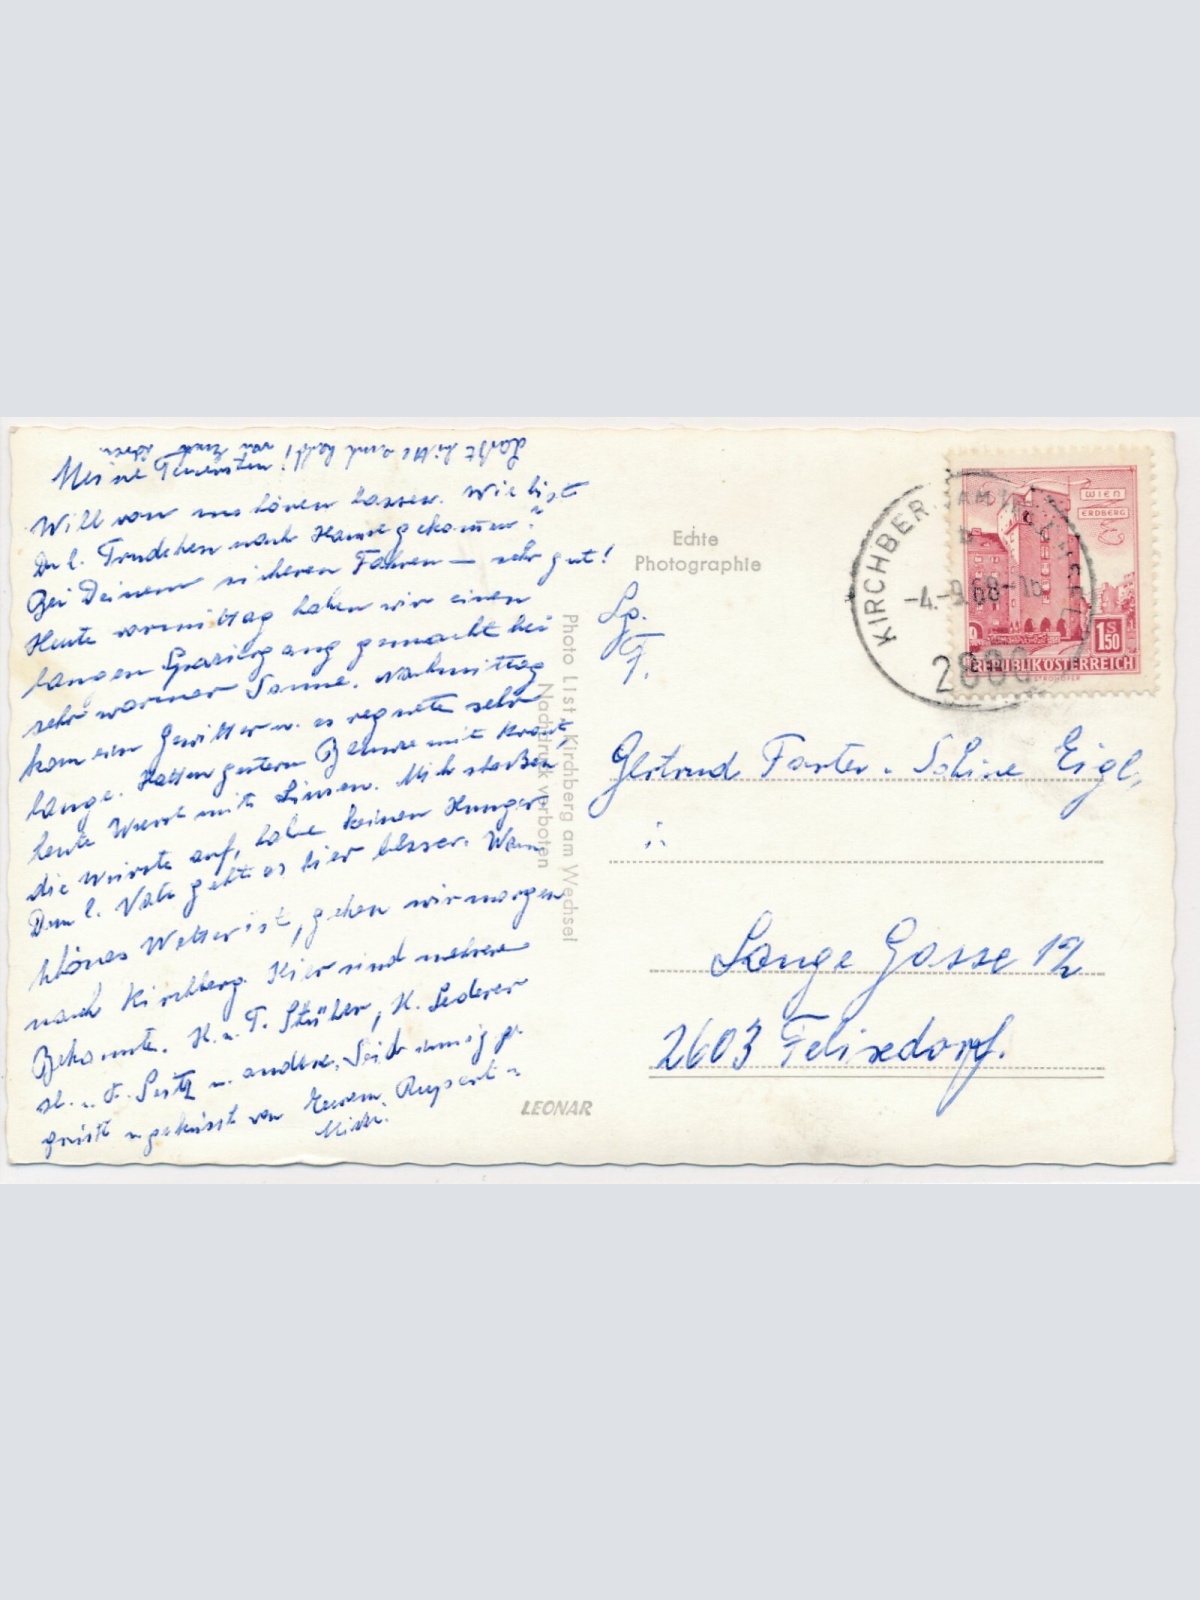 Meine Teuersten!
Will von uns hören lassen. Wie bist
Du l. Trudchen nach Hause gekommen?
Bei Deinem sicheren Fahren — sehr gut!
Heute vormittag haben wir einen
langen Spaziergang gemacht bei
sehr warmer Sonne. Nachmittag
kam ein Gewitter u. es regnete sehr
lange. Hatten gestern mit Kraut,
heute Wurst mit Linsen. Mich stoßen
die Würste auf, habe keinen Hunger.
Dem l. Vati geht es hier besser. Wenn
schönes Wetter ist, gehen wir morgen
nach Kirchberg. Hier sind mehrere
Bekannte. H. u. F. Stüber, H. Lederer
H. u. F. u. andere. Seid innig ge-
grüßt u. geküsst von Eurem Rupert u.
Lasst bitte bald von Euch hören.
Echte
Photographie
Photo List Kirchberg am Wechsel
Nachdruck verboten
LEONAR
KIRCHBERG AM WECHSEL
-4.-9.68-16
2880
WIEN
ERDBERG
1 S 50
REPUBLIK ÖSTERREICH
Lp.
F.
Gertrud Forster - Sabine Eigl,
i.
Lange Gasse 12
2603 Felixdorf.